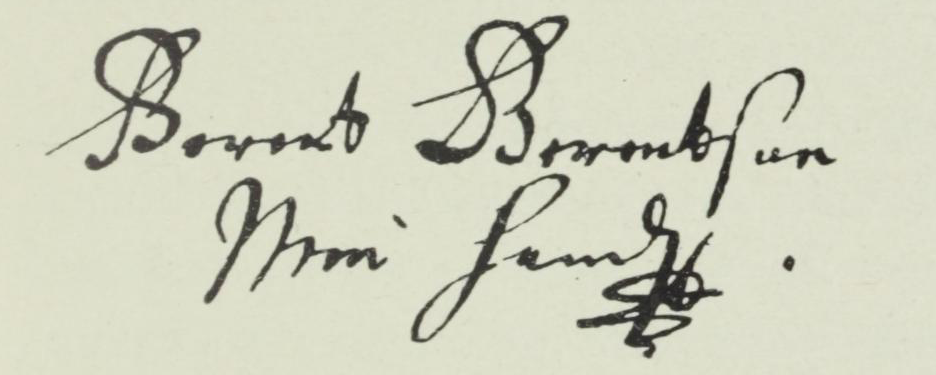 Berent Berentsen
Min Handt.